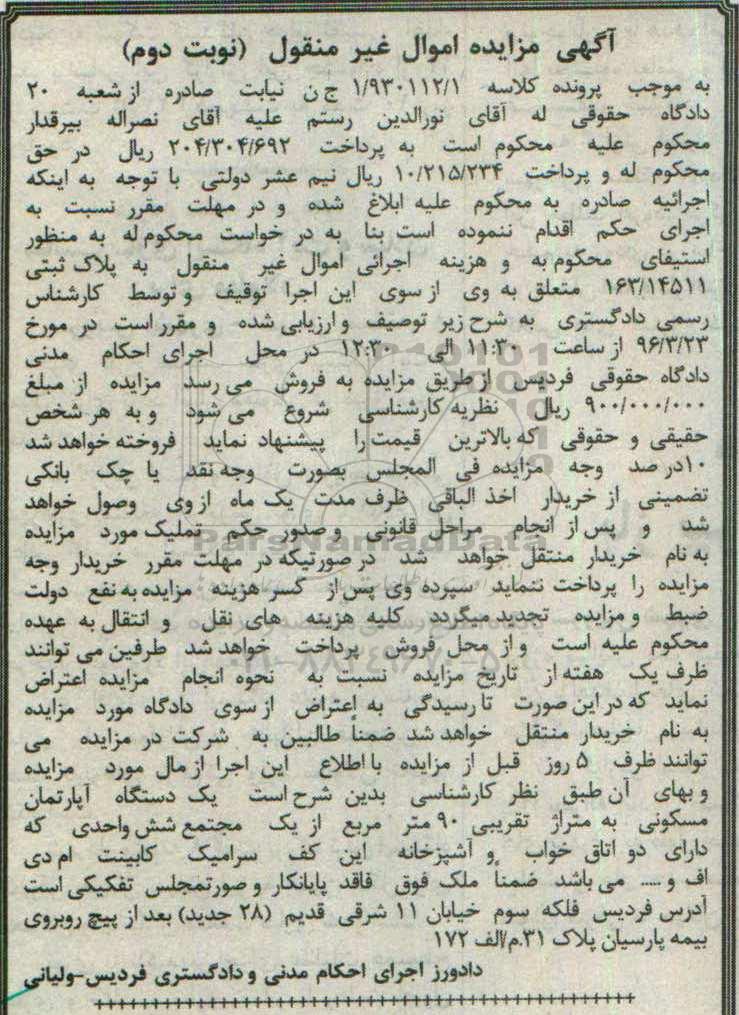 آگهی مزایده اموال غیر منقول (نوبت دوم)
به موجب پرونده کلاسه ۱/۹۳۰۱۱۲/۱ ج ن نیابت صادره از شعبه ۲۰
دادگاه حقوقی له آقای نورالدین رستم علیه آقای نصراله بیرقدار
محکوم علیه محکوم است به پرداخت ۲۰۴/۳۰۴/۶۹۲ ریال در حق
محکوم له و پرداخت ۱۰/۲۱۵/۲۳۴ ریال نیم عشر دولتی با توجه به اینکه
اجرائیه صادره به محکوم علیه ابلاغ شده و در مهلت مقرر نسبت به
اجرای حکم اقدام ننموده است بنا به در خواست محکوم له به منظور
استیفای محکوم به و هزینه اجرائی اموال غیر منقول به پلاک ثبتی
۱۶۳/۱۴۵۱۱ متعلق به وی از سوی این اجرا توقیف و توسط کارشناس
رسمی دادگستری به شرح زیر توصیف و ارزیابی شده و مقرر است در مورخ
۹۶/۳/۲۳ از ساعت ۱۱:۳۰ الی ۱۲:۳۰ در محل اجرای احکام مدنی
دادگاه حقوقی فردیس از طریق مزایده به فروش می رسد مزایده از مبلغ
۹۰۰/۰۰۰/۰۰۰ ریال نظریه کارشناسی شروع می شود و به هر شخص
حقیقی و حقوقی که بالاترین قیمت را پیشنهاد نماید فروخته خواهد شد
۱۰در صد وجه مزایده فی المجلس بصورت وجه نقد یا چک بانکی
تضمینی از خریدار اخذ الباقی ظرف مدت یک ماه از وی وصول خواهد
شد و پس از انجام مراحل قانونی و صدور حکم تملیک مورد مزایده
به نام خریدار منتقل خواهد شد در صورتیکه در مهلت مقرر خریدار وجه
مزایده را پرداخت ننماید سپرده وی پس از کسر هزینه مزایده به نفع دولت
ضبط و مزایده تجدید میگردد کلیه هزینه های نقل و انتقال به عهده
محکوم علیه است و از محل فروش پرداخت خواهد شد طرفین می توانند
ظرف یک هفته از تاریخ مزایده نسبت به نحوه انجام مزایده اعتراض
نماید که در این صورت تا رسیدگی به اعتراض از سوی دادگاه مورد مزایده
به نام خریدار منتقل خواهد شد ضمناً طالبین به شرکت در مزایده می
توانند ظرف ۵ روز قبل از مزایده با اطلاع این اجرا از مال مورد مزایده
و بهای آن طبق نظر کارشناسی بدین شرح است یک دستگاه آپارتمان
مسکونی به متراژ تقریبی ۹۰ متر مربع از یک مجتمع شش واحدی که
دارای دو اتاق خواب و آشپزخانه این کف سرامیک کابینت ام دی
اف و ..... می باشد ضمناً ملک فوق فاقد پایانکار و صورتمجلس تفکیکی است
آدرس فردیس فلکه سوم خیابان ۱۱ شرقی قدیم (۲۸ جدید) بعد از پیچ روبروی
بیمه پارسیان پلاک ۳۱.م/الف ۱۷۲
دادورز اجرای احکام مدنی و دادگستری فردیس-ولیانی
ParsNamadData